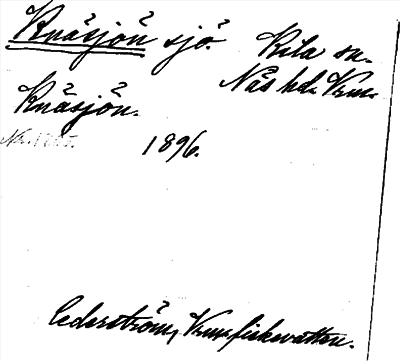 Knåsjön sjö. Kila sn.
Näs hd. Vrml.
Knåsjön.
1896.
Cederström, Vrml. fiskevatten.